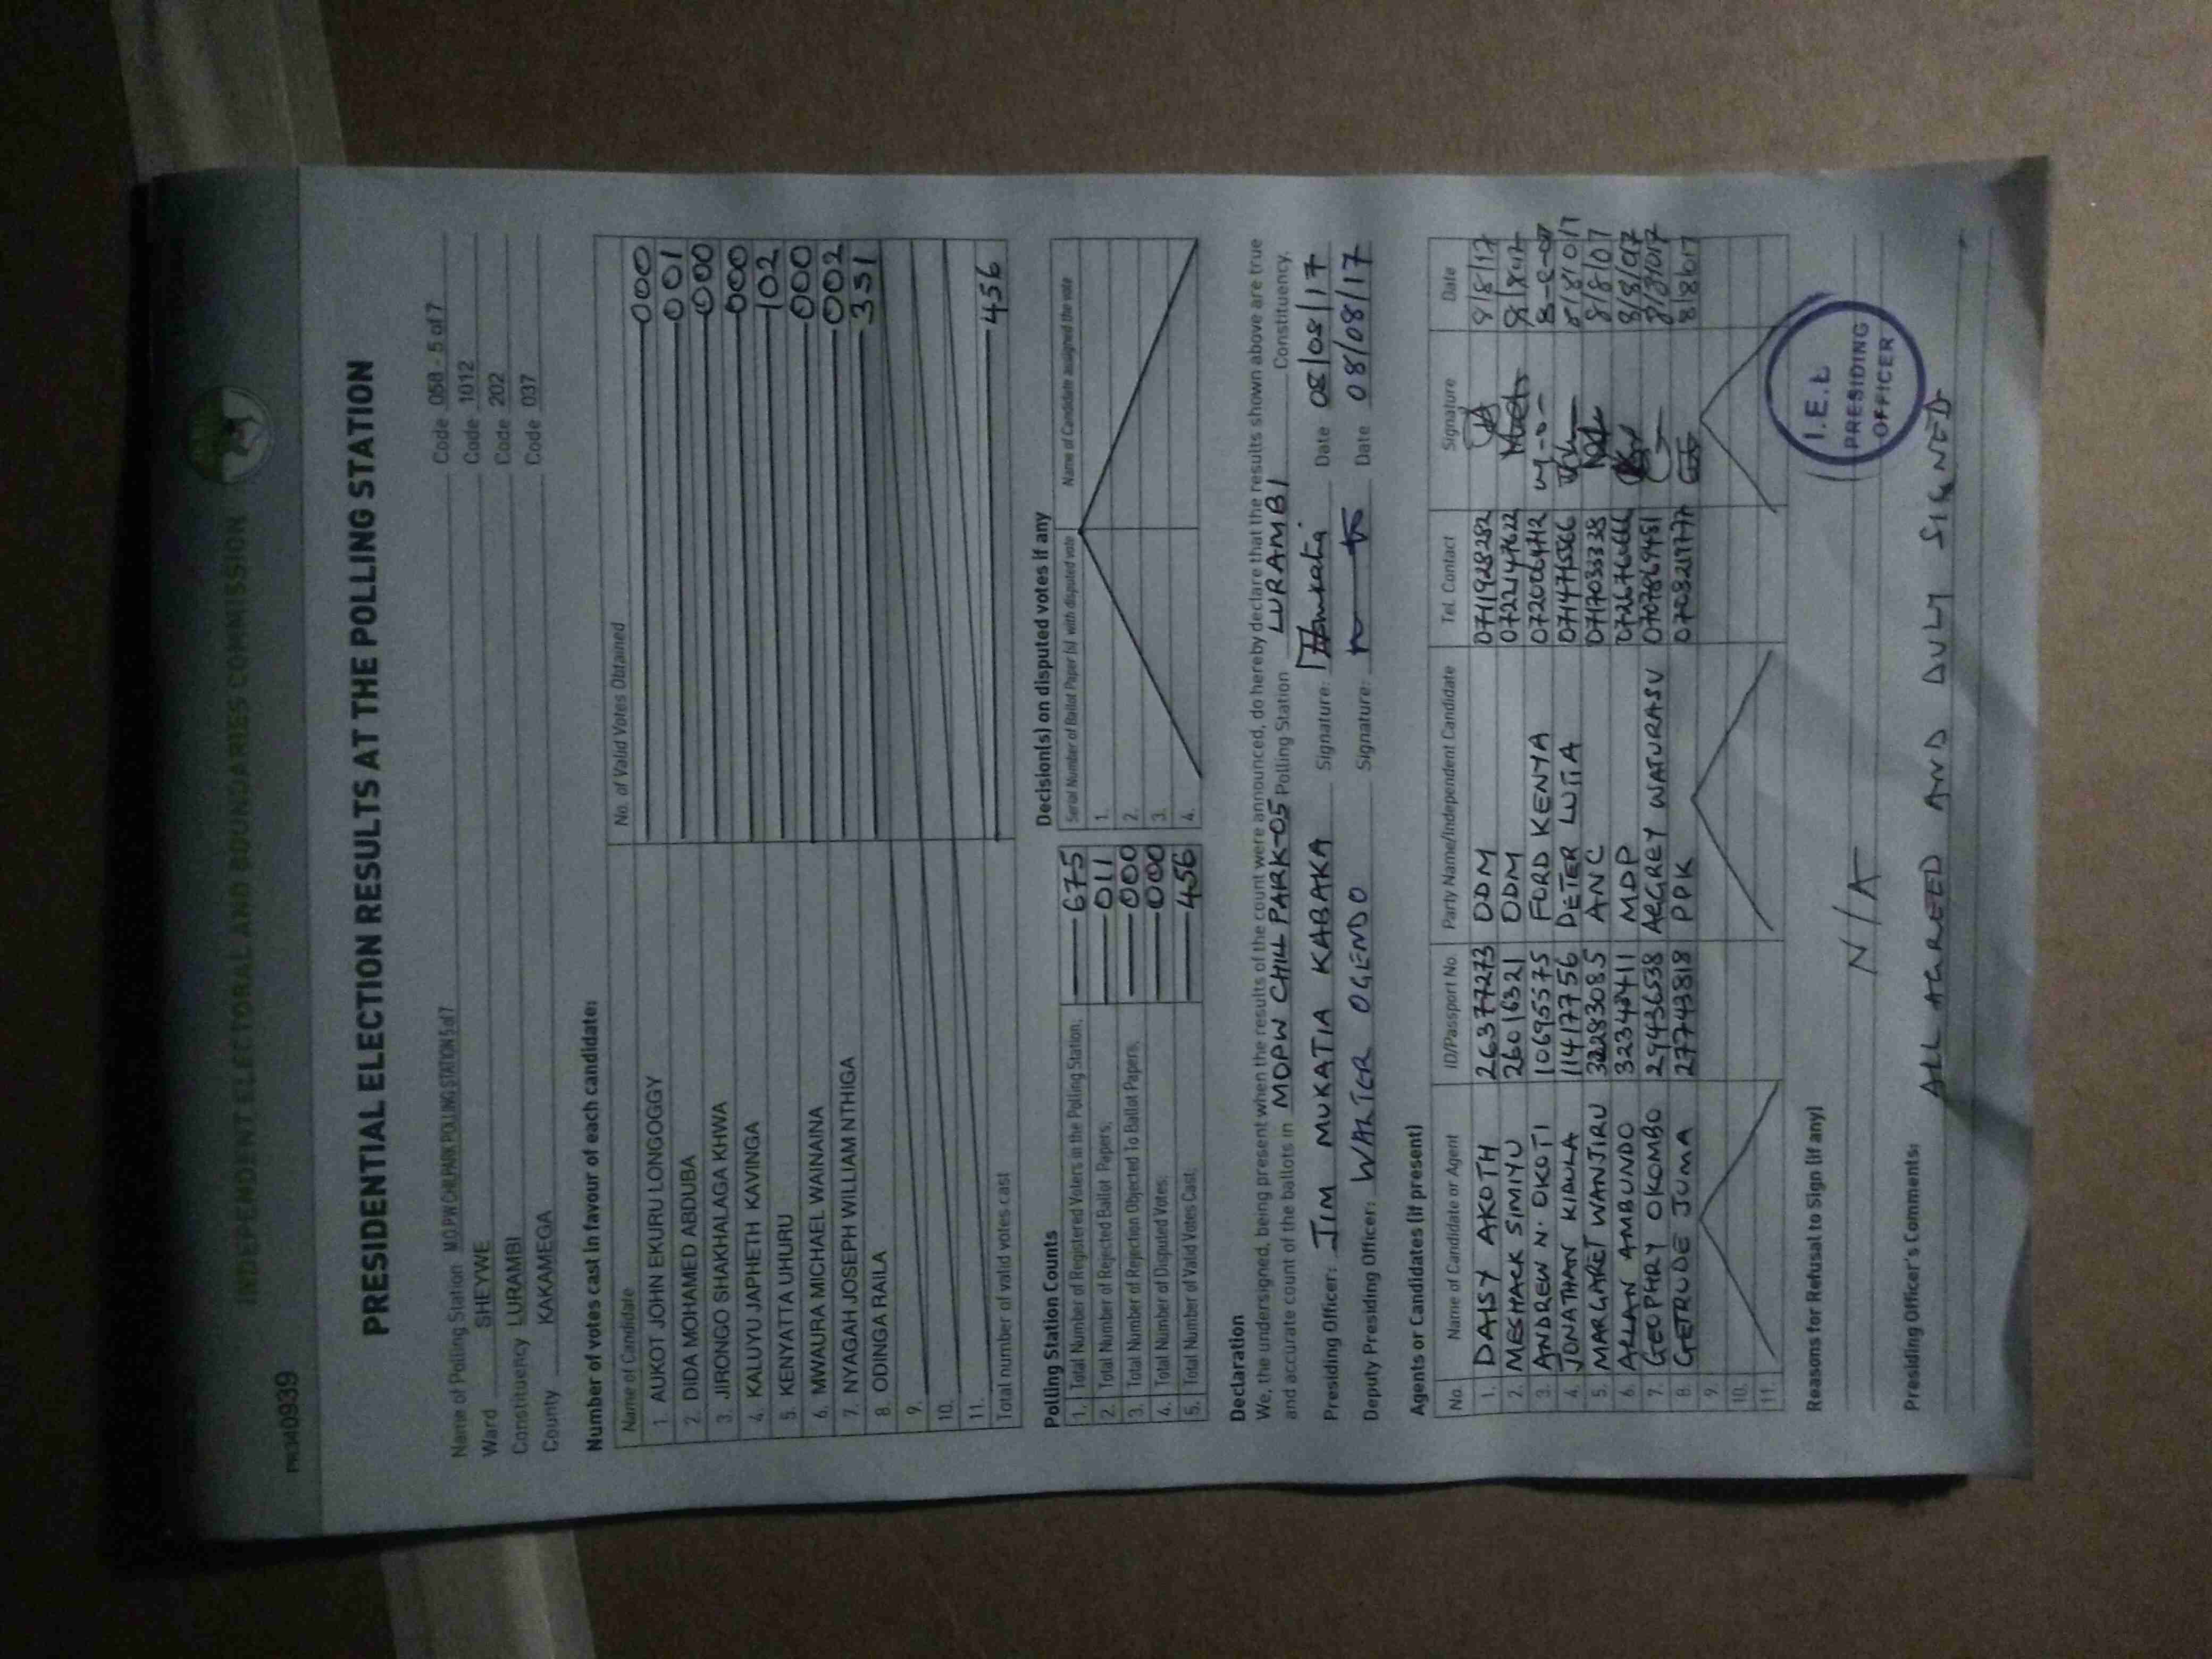 INDEPENDENT ELECTORAL AND BOUNDARIES COMMISSION
PRESIDENTIAL ELECTION RESULTS AT THE POLLING STATION
Name of Polling Station M.O.P.W CHILPARK POLLING STATION 5 of 7 Code 058 - 5 of 7
Ward SHEYWE Code 1012
Constituency LURAMBI Code 202
County KAKAMEGA Code 037
Number of votes cast in favour of each candidate:
Name of Candidate No. of Valid Votes Obtained
1. AUKOT JOHN EKURU LONGOGGY 000
2. DIDA MOHAMED ABDUBA 001
3. JIRONGO SHAKHALAGA KHWA 000
4. KALUYU JAPHETH KAVINGA 000
5. KENYATTA UHURU 102
6. MWAURA MICHAEL WAINAINA 000
7. NYAGAH JOSEPH WILLIAM NTHIGA 002
8. ODINGA RAILA 351
9.
10.
11.
Total number of valid votes cast 456
Polling Station Counts
1. Total Number of Registered Voters in the Polling Station; 675
2. Total Number of Rejected Ballot Papers; 011
3. Total Number of Rejection Objected To Ballot Papers; 000
4. Total Number of Disputed Votes; 000
5. Total Number of Valid Votes Cast; 456
Decision(s) on disputed votes if any
Serial Number of Ballot Paper (s) with disputed vote Name of Candidate assigned the vote
1.
2.
3.
4.
Declaration
We, the undersigned, being present when the results of the count were announced, do hereby declare that the results shown above are true
and accurate count of the ballots in MOPW CHILL PARK-05 Polling Station LURAMBI Constituency.
Presiding Officer: JIM MUKATIA KABAKA Signature: Date 08/08/17
Deputy Presiding Officer: WALTER OGENDO Signature: Date 08/08/17
Agents or Candidates (if present)
No. Name of Candidate or Agent ID/Passport No. Party Name/Independent Candidate Tel. Contact Signature Date
1. DAISY AKOTH 26377273 ODM 0741928282 8/8/17
2. MESHACK SIMIYU 26016321 ODM
3. ANDREW N. OKOTI 10695575 FORD KENYA
4. JONATHAN KIAULA 11417756 PETER LUTIA
5. MARGARET WANJIRU ANC 0717033338
6. ALLAN AMBUNDO MDP
7. GEOPHRY OKOMBO 29436538 ARGREY WATURASU
8. GETRUDE JUMA 27743818 PPK
9.
10.
11.
Reasons for Refusal to Sign (if any)
N/A
Presiding Officer's Comments:
ALL AGREED AND DULY SIGNED
PRESIDING
OFFICER